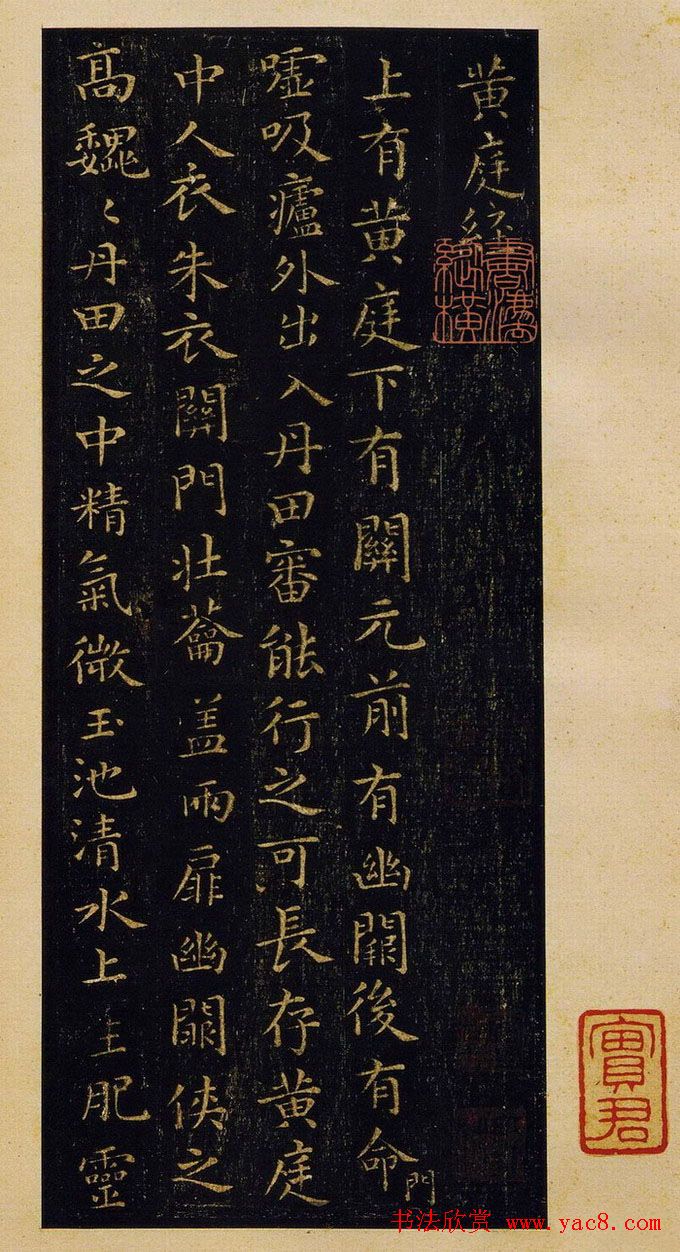 黄庭經
上有黄庭下有關元前有幽闕後有命門
嘘吸廬外出入丹田審能行之可長存黄庭
中人衣朱衣關門壯蘥盖兩扉幽闕俠之
高巍〻丹田之中精氣微玉池清水上生肥靈
书法欣赏 www.yac8.com